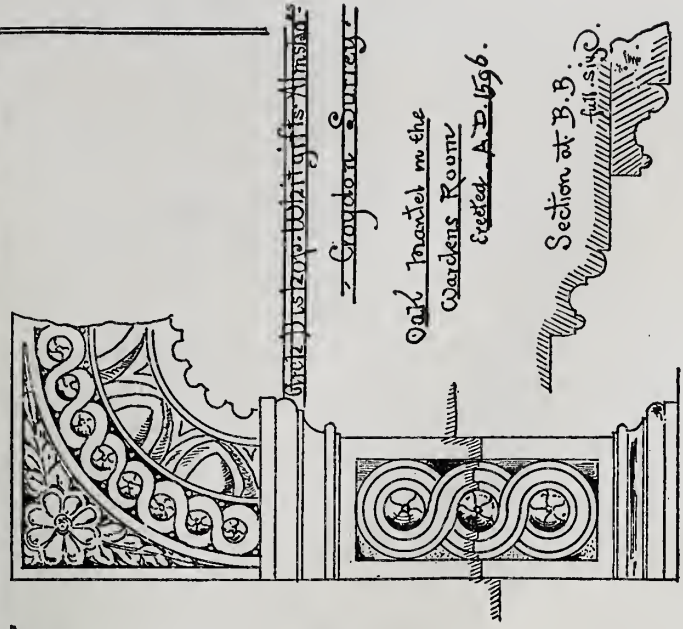 Arch Bishop. Whitgifts
Croydon Surrey
Oak Mantel in the
Wardens Room
Erected A.D. 1596.
Section at B.B.
full size.